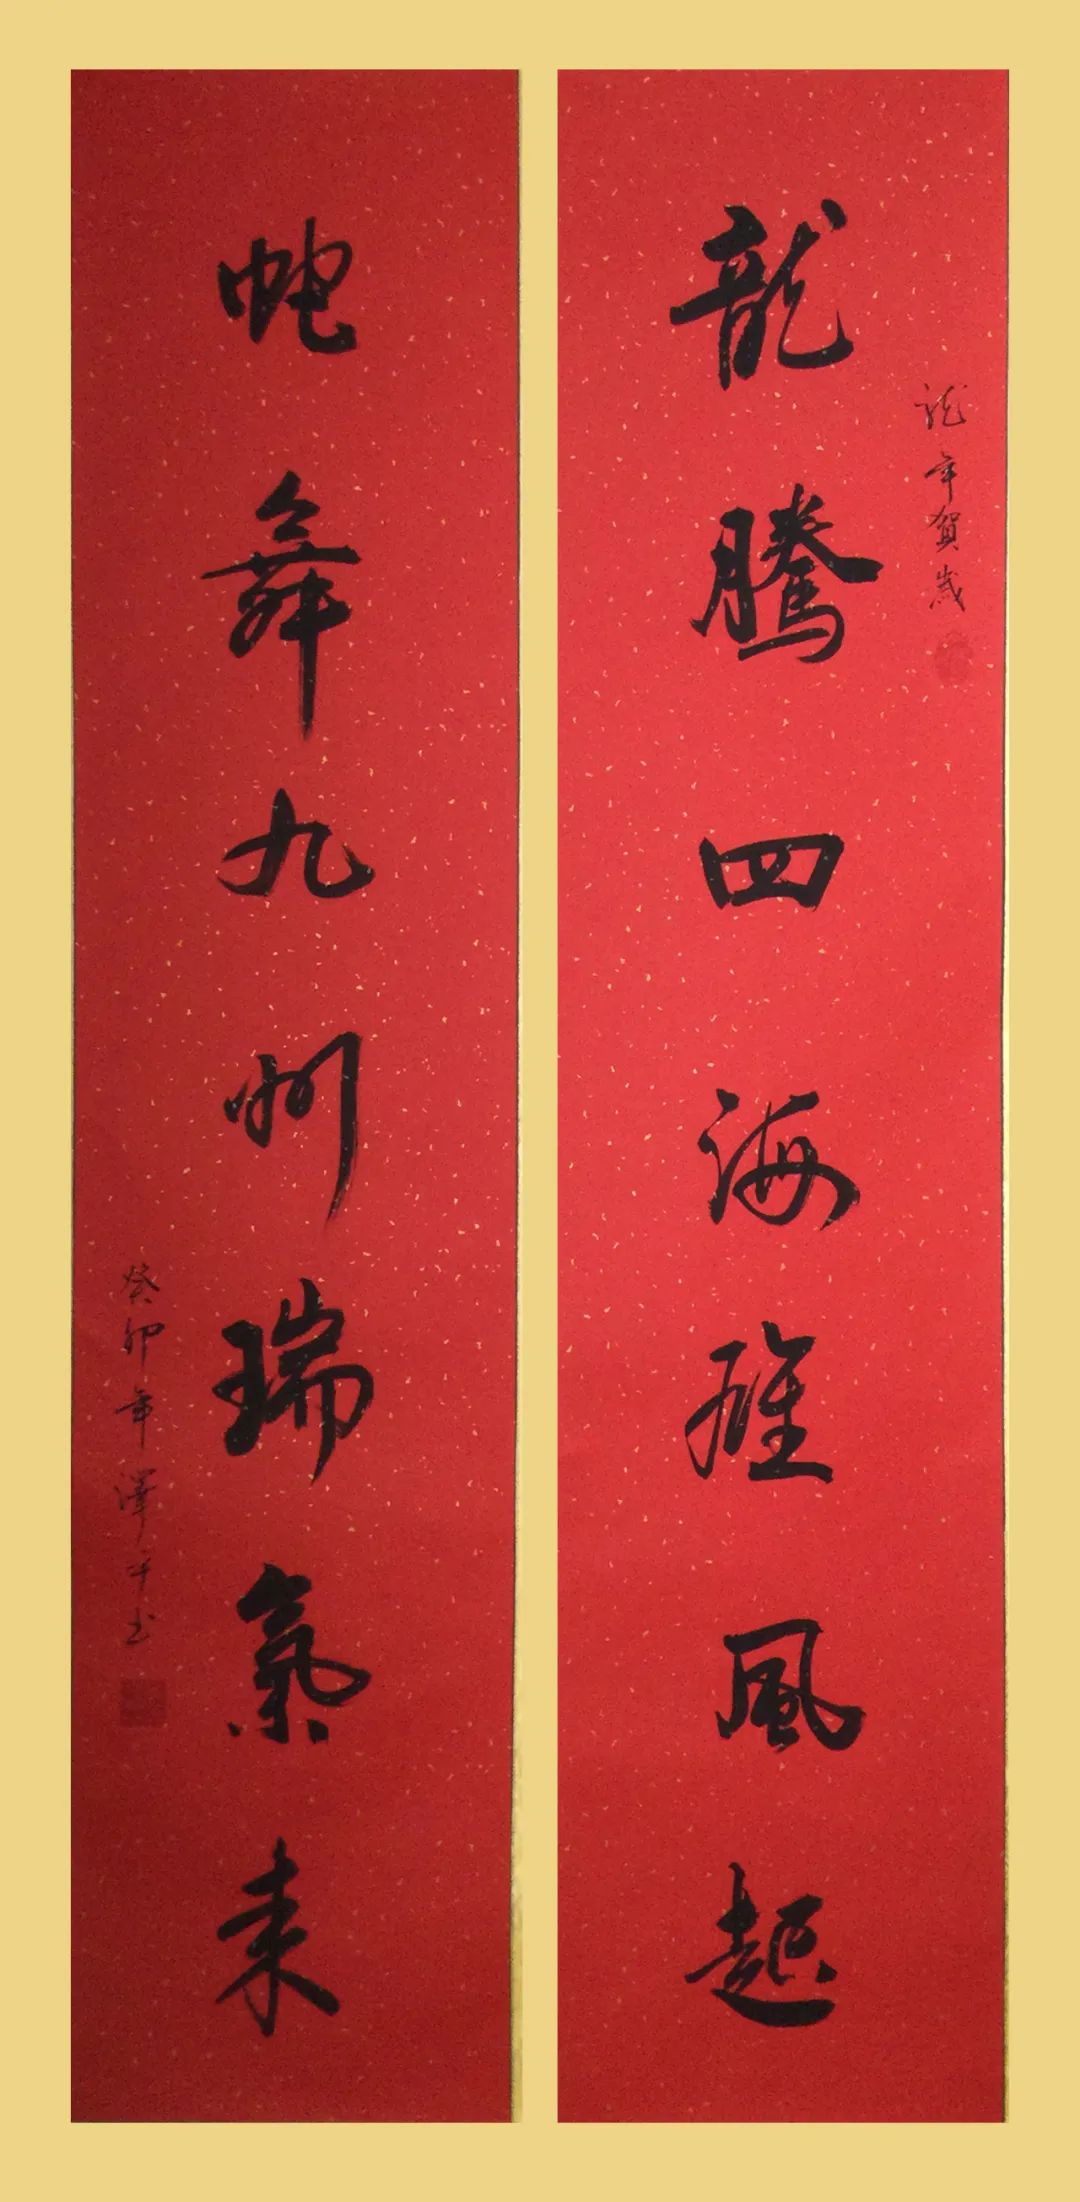 龍年賀歲
龍騰四海雄風起
蛇舞九州瑞氣來
癸卯年澤平書